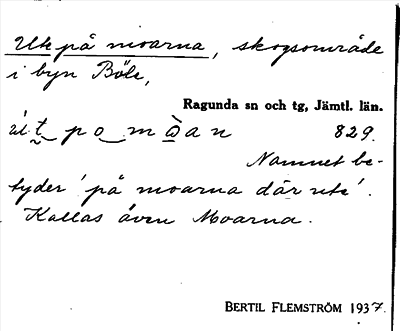 Ute på moarna, skogsområde
i byn Böle,
Ragunda sn och tg, Jämtl. län.
ùt po mòan 829.
Namnet be-
tyder 'på moarna där ute'.
Kallas även Moarna.
BERTIL FLEMSTRÖM 1937.